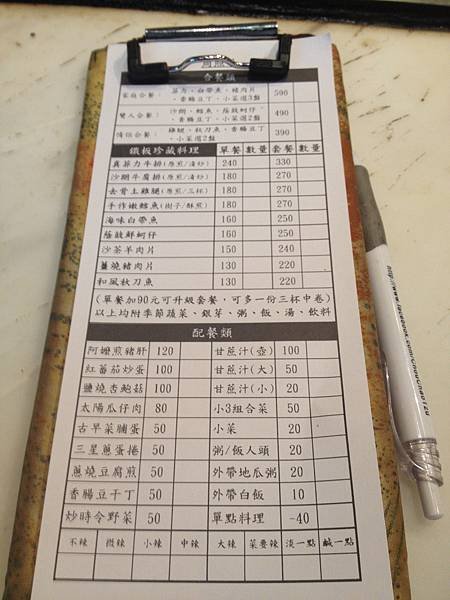 合餐類
家庭合餐: 菲力、白帶魚、豬肉片、香腸豆丁、小菜選3盤 590
雙人合餐: 沙朗、鱈魚、蔭豉蚵仔、香腸豆丁、小菜選2盤 490
情侶合餐: 雞腿、秋刀魚、香腸豆丁、小菜選2盤 390
鐵板珍藏料理 單餐 數量 套餐 數量
真菲力牛排(原煎/清炒) 240 330
沙朗牛肩排(原煎/清炒) 180 270
去骨土雞腿(原煎/三杯) 180 270
手作嫩鱈魚(樹子/酥煎) 180 270
海味白帶魚 160 250
蔭豉鮮蚵仔 160 250
沙茶羊肉片 150 240
薑燒豬肉片 130 220
和風秋刀魚 130 220
(單餐加90元可升級套餐,可多一份三杯中卷)
以上均附季節蔬菜、銀芽、粥、飯、湯、飲料
配餐類
阿嬤煎豬肝 120 甘蔗汁(壺) 100
紅蕃茄炒蛋 100 甘蔗汁(大) 50
鹽燒杏鮑菇 100 甘蔗汁(小) 20
太陽瓜仔肉 80 小3組合菜 50
古早菜脯蛋 50 小菜 20
三星蔥蛋捲 50 粥/飯人頭 20
蔥燒豆腐煎 50 外帶地瓜粥 20
香腸豆干丁 50 外帶白飯 10
炒時令野菜 50 單點料理 -40
不辣 微辣 小辣 中辣 大辣 菜要辣 淡一點 鹹一點